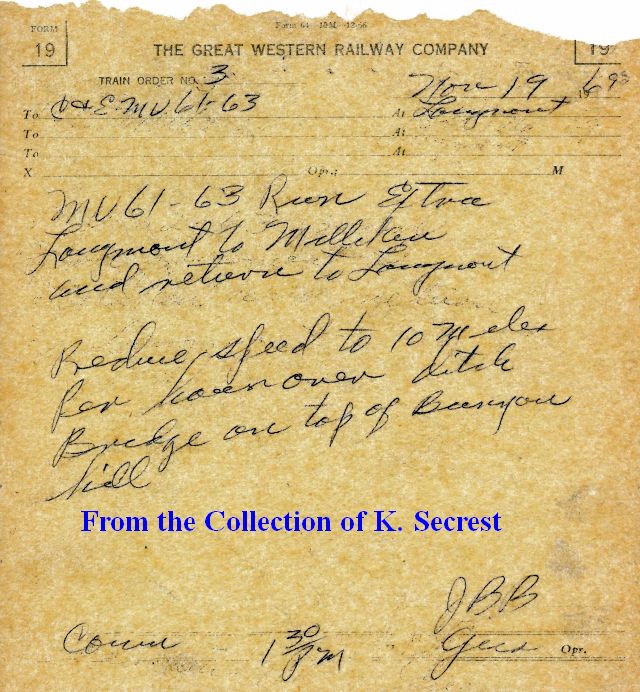 Form 64—10M—12-56
FORM
19
THE GREAT WESTERN RAILWAY COMPANY
19
TRAIN ORDER NO. 3
Nov 19 19
To C+E MU 61-63 At Longmont
To At
To At
X Opr.; M
MU 61-63 Run Extra
Longmont to Milliken
and return to Longmont
Reduce speed to 10 Miles
Per hour over ditch
Bridge on top of Bunyou
hill
From the Collection of K. Secrest
JBB
Com 1 30 PM Opr.